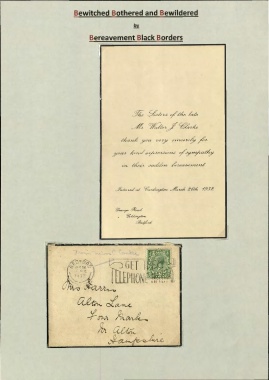 Bewitched Bothered and Bewildered
By
Bereavement Black Borders
The Sisters of the late
Mr. Walter J. Clarke
thank you very sincerely for
your kind expressions of sympathy
in their sudden bereavement
Interred at Cardington March 26th, 1932
Bedford
GET
TELEPHONE
Mrs Harris
Alton Lane
Four Marks
Nr Alton
Hampshire